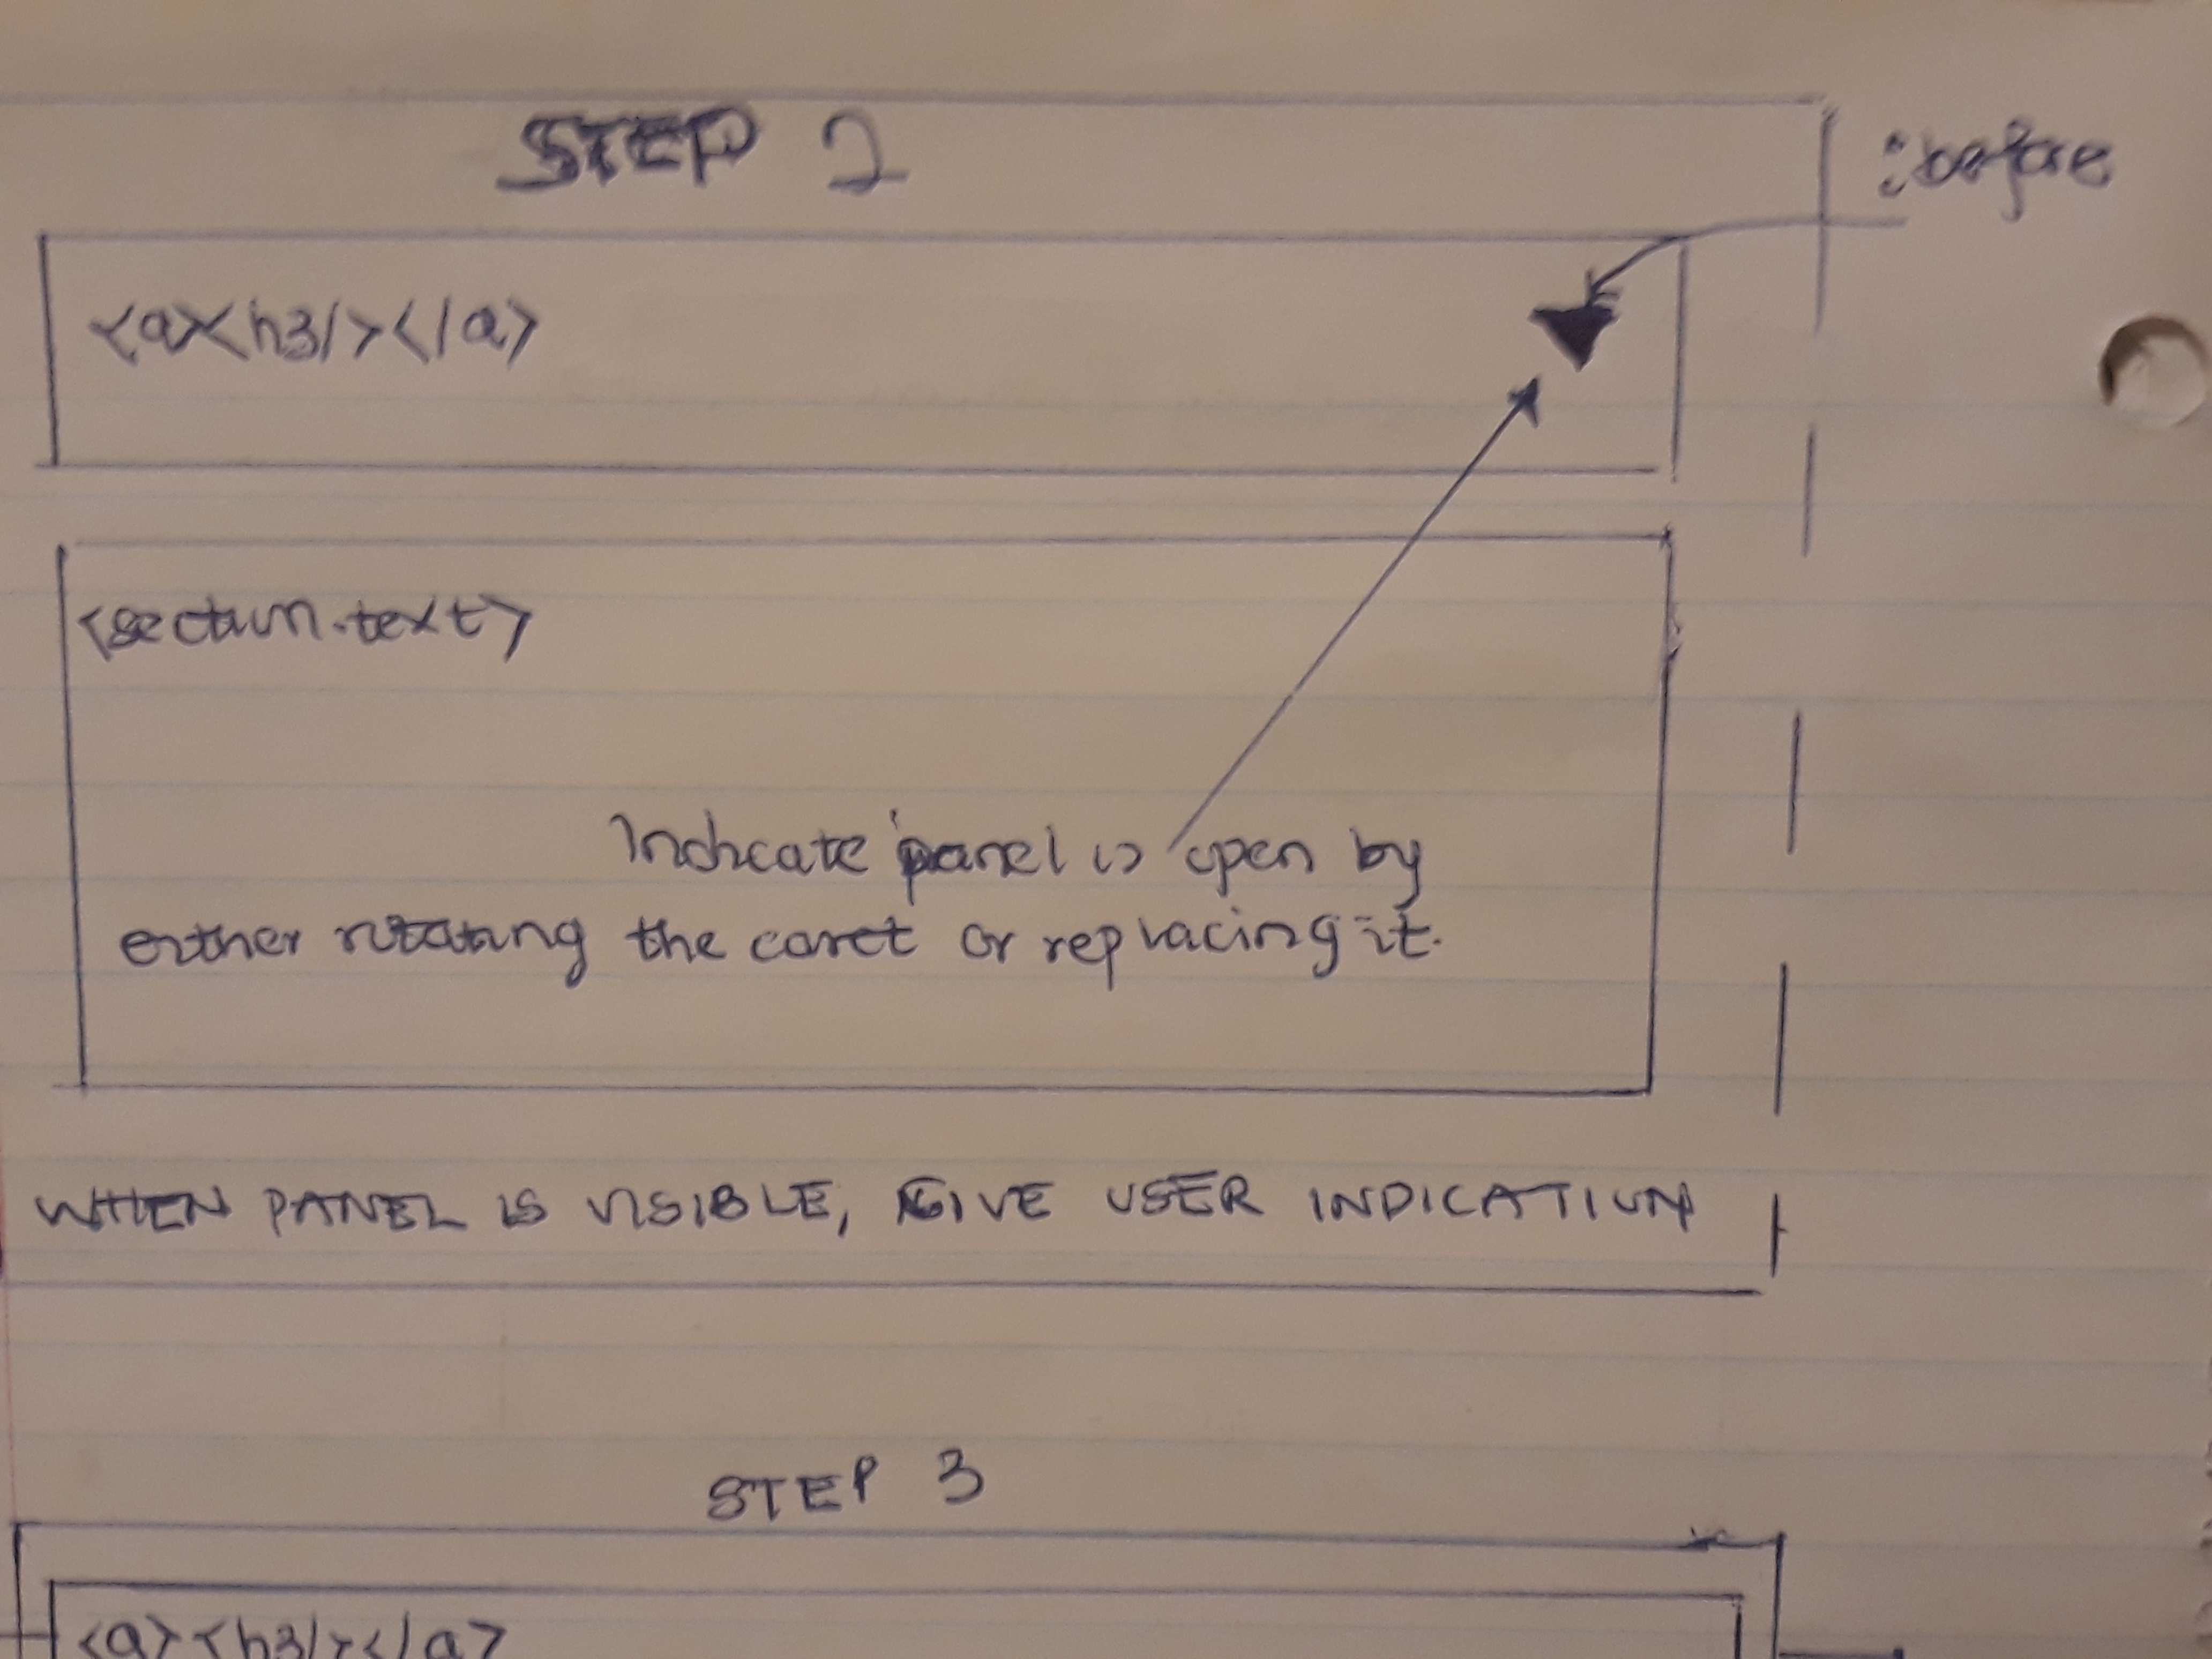 STEP 2
::before
<a><h3/></a>
<section.text>
Indicate panel is open by
either rotating the caret or replacing it.
WHEN PANEL IS VISIBLE, GIVE USER INDICATION
STEP 3
<a><h3/></a>